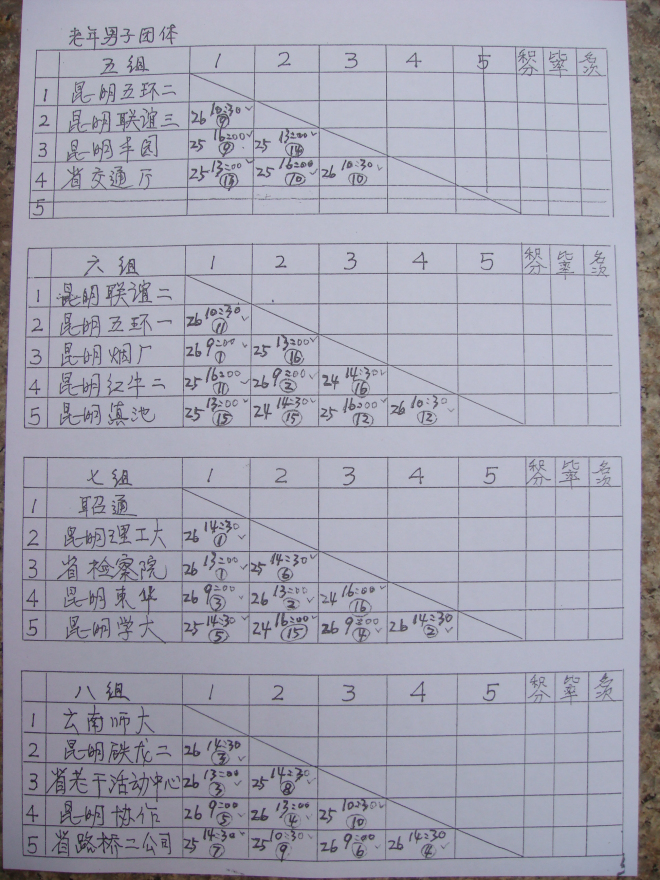 老年男子团体
五组 1 2 3 4 5 积分 比率 名次
1 昆明五环二
2 昆明联谊三 26 10:30 ⑨
3 昆明丰园 25 16:00 ⑨ 25 13:00 ⑭
4 省交通厅 25 13:00 ⑬ 25 16:00 ⑩ 26 10:30 ⑩
5
六组 1 2 3 4 5 积分 比率 名次
1 昆明联谊二
2 昆明五环一 26 10:30 ⑪
3 昆明烟厂 26 9:00 ① 25 13:00 ⑯
4 昆明红牛二 25 16:00 ⑪ 26 9:00 ② 24 14:30 ⑯
5 昆明滇池 25 13:00 ⑮ 24 14:30 ⑮ 25 16:00 ⑫ 26 10:30 ⑫
七组 1 2 3 4 5 积分 比率 名次
1 昭通
2 昆明理工大 26 14:30 ①
3 省检察院 26 13:00 ① 25 14:30 ⑥
4 昆明東华 26 9:00 ③ 26 13:00 ② 24 16:00 ⑯
5 昆明学大 25 14:30 ⑤ 24 16:00 ⑮ 26 9:00 ④ 26 14:30 ②
八组 1 2 3 4 5 积分 比率 名次
1 云南师大
2 昆明铁龙二 26 14:30 ③
3 省老干活动中心 26 13:00 ③ 25 14:30 ⑧
4 昆明协作 26 9:00 ⑤ 26 13:00 ④ 25 10:30 ⑩
5 省路桥二公司 25 14:30 ⑦ 25 10:30 ⑨ 26 9:00 ⑥ 26 14:30 ④